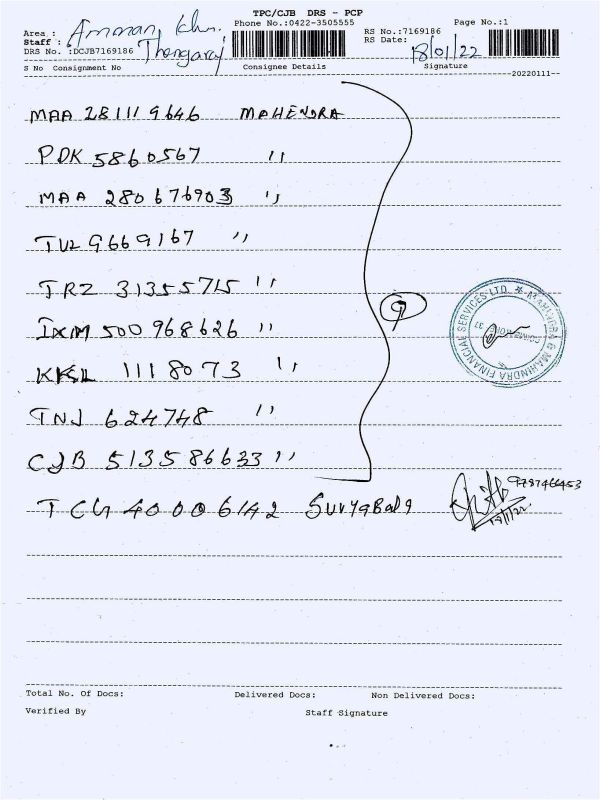 TPC/CJB DRS - PCP
Phone No.:0422-3505555
Page No.:1
Area : Amman, khn.
Staff : Thangaraj
DRS No. :DCJB7169186
RS No.:7169186
RS Date: 18/01/22
S No Consignment No Consignee Details Signature
--20220111--
MAA 281119646 MAHENDRA
PDK 5860567 "
MAA 280676903 "
TUL 9669167 "
TRZ 31355715 "
IXM 500968626 "
KKL 1118073 "
TNJ 624748 "
CJB 513586633 "
9
MAHINDRA & MAHINDRA FINANCIAL SERVICES LTD.
TCG 40006142 SuryaBala
9787466453
18/1/22
Total No. Of Docs: Delivered Docs: Non Delivered Docs:
Verified By Staff Signature